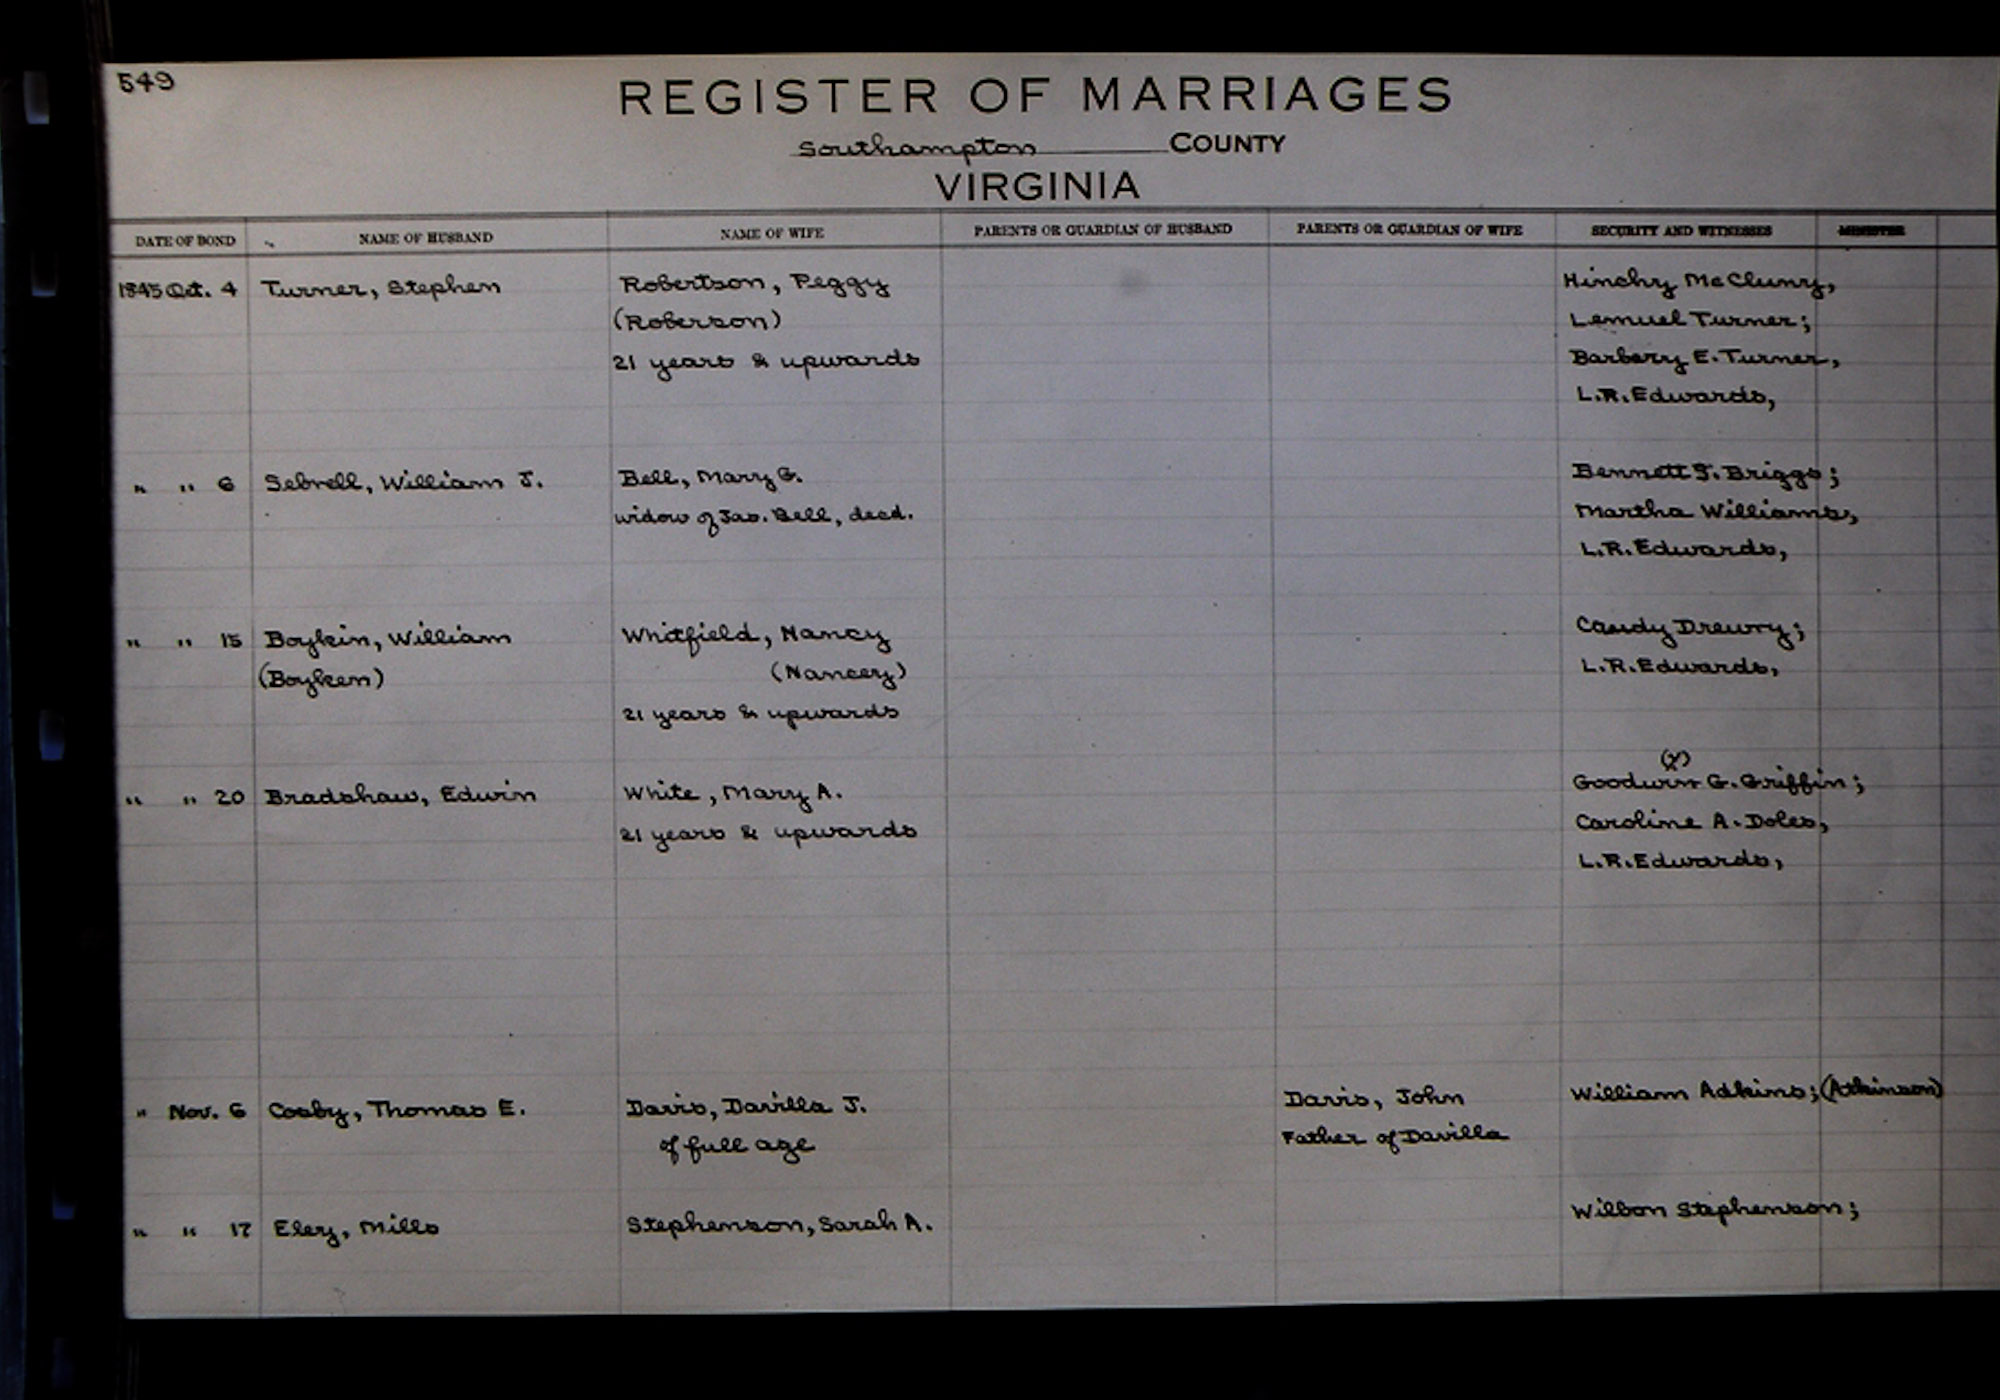 549
REGISTER OF MARRIAGES
Southampton COUNTY
VIRGINIA
DATE OF BOND NAME OF HUSBAND NAME OF WIFE PARENTS OR GUARDIAN OF HUSBAND PARENTS OR GUARDIAN OF WIFE SECURITY AND WITNESSES MINISTER
1845 Oct. 4 Turner, Stephen Robertson, Peggy Hinchy McCluny,
(Roberson) Lemuel Turner;
21 years & upwards Barbery E. Turner,
L.R. Edwards,
" " 6 Sebrell, William J. Bell, Mary G. Bennett J. Briggs;
widow of Jas. Bell, decd. Martha Williams,
L.R. Edwards,
" " 15 Boykin, William Whitfield, Nancy Candy Drewry;
(Boyken) (Nancey) L.R. Edwards,
21 years & upwards
(x)
" " 20 Bradshaw, Edwin White, Mary A. Goodwin G. Griffin;
21 years & upwards Caroline A. Doles,
L.R. Edwards,
" Nov. 6 Cosby, Thomas E. Davis, Davilla J. Davis, John William Adkins; (Atkinson)
of full age Father of Davilla
" " 17 Eley, Mills Stephenson, Sarah A. Wilson Stephenson;